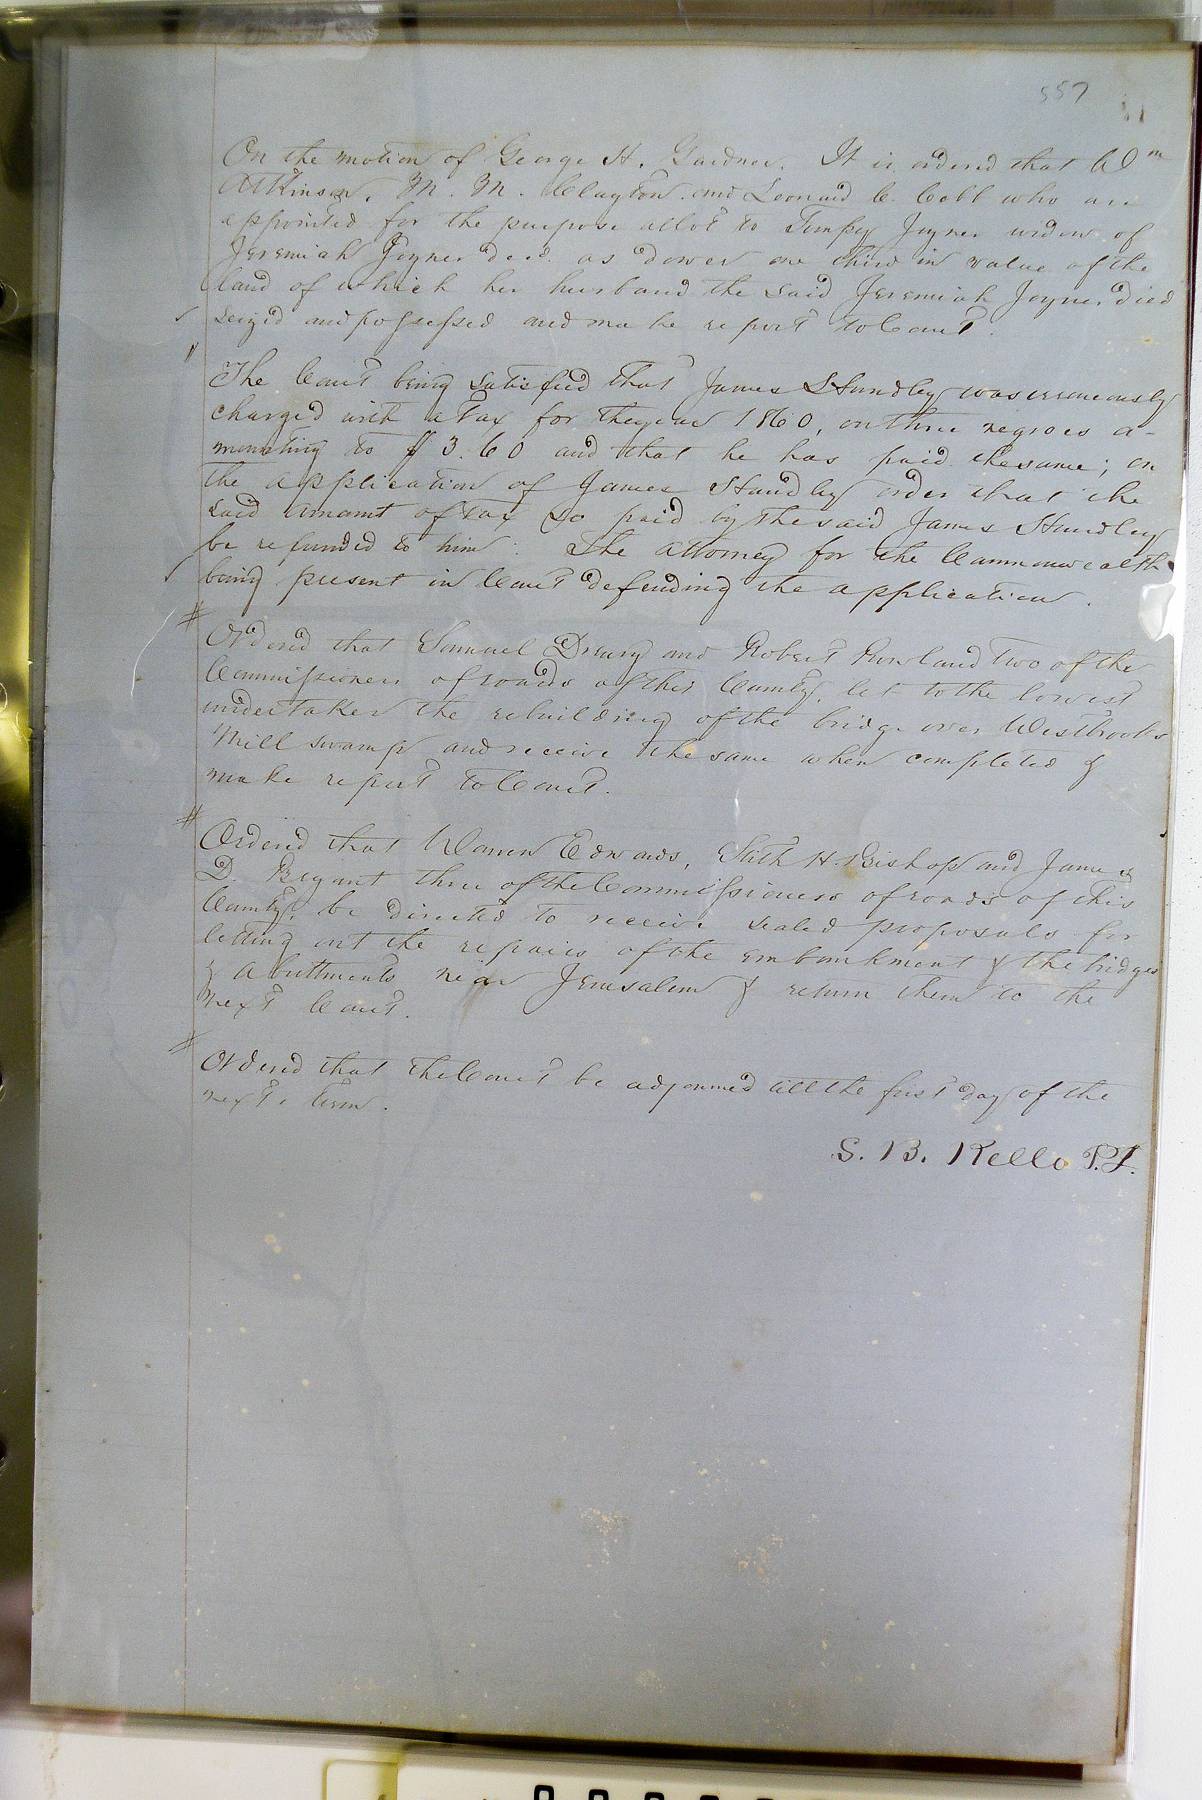 557
On the motion of George H. Gardner. It is ordered that Wm
Atkinson, M. M. Clayton and Leonard C. Cobb who are
appointed for the purpose allot to Tempy Joyner widow of
Jeremiah Joyner decd. as dower one third in value of the
land of which her husband the said Jeremiah Joyner died
seized and possessed and make report to Court.
The Court being satisfied that James S Hundley was erroneously
charged with a Tax for the year 1860, on three negroes a-
mounting to $3.60 and that he has paid the same; on
the application of James Hundley order that the
said amount of tax so paid by the said James Hundley
be refunded to him. The attorney for the Commonwealth
being present in Court defending the application.
Ordered that Samuel Drewry and Robert Rowland two of the
Commissioners of roads of this County, let to the lowest
undertaker the rebuilding of the bridge over Westbrooks
Mill swamp and receive the same when completed &
make report to Court.
Ordered that Warren Edwards, Stith H. Bishop and James
D. Bryant three of the Commissioners of roads of this
County, be directed to receive sealed proposals for
letting out the repairs of the embankment & the bridges
& abuttments near Jerusalem & return them to the
next Court.
Ordered that the Court be adjourned till the first day of the
next term.
S. B. Kello P.J.